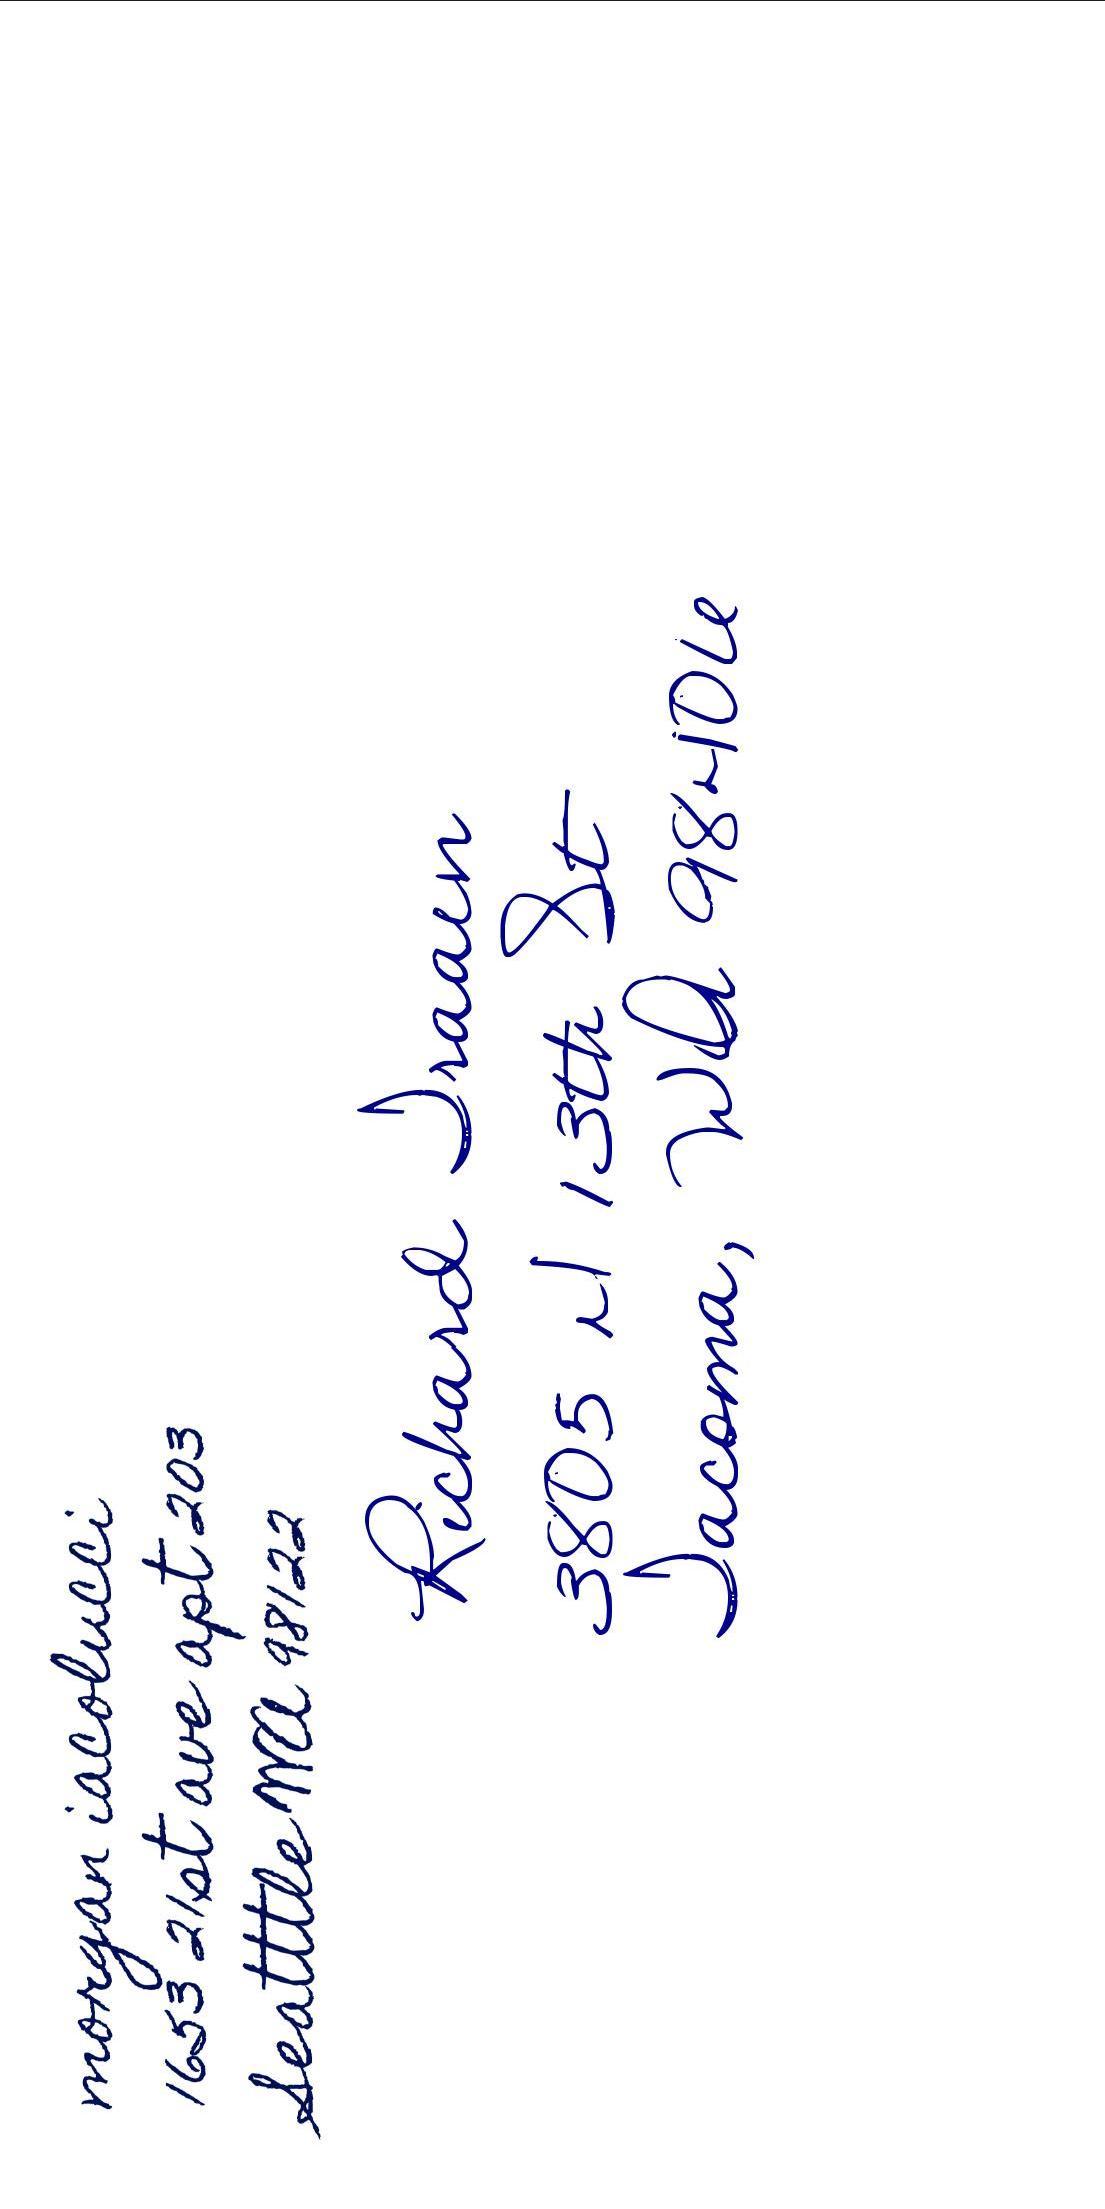 morgan iacolucci
1653 21st ave apt 203
Seattle WA 98122
Richard Traaen
3805 N 13th St
Tacoma, WA 98406